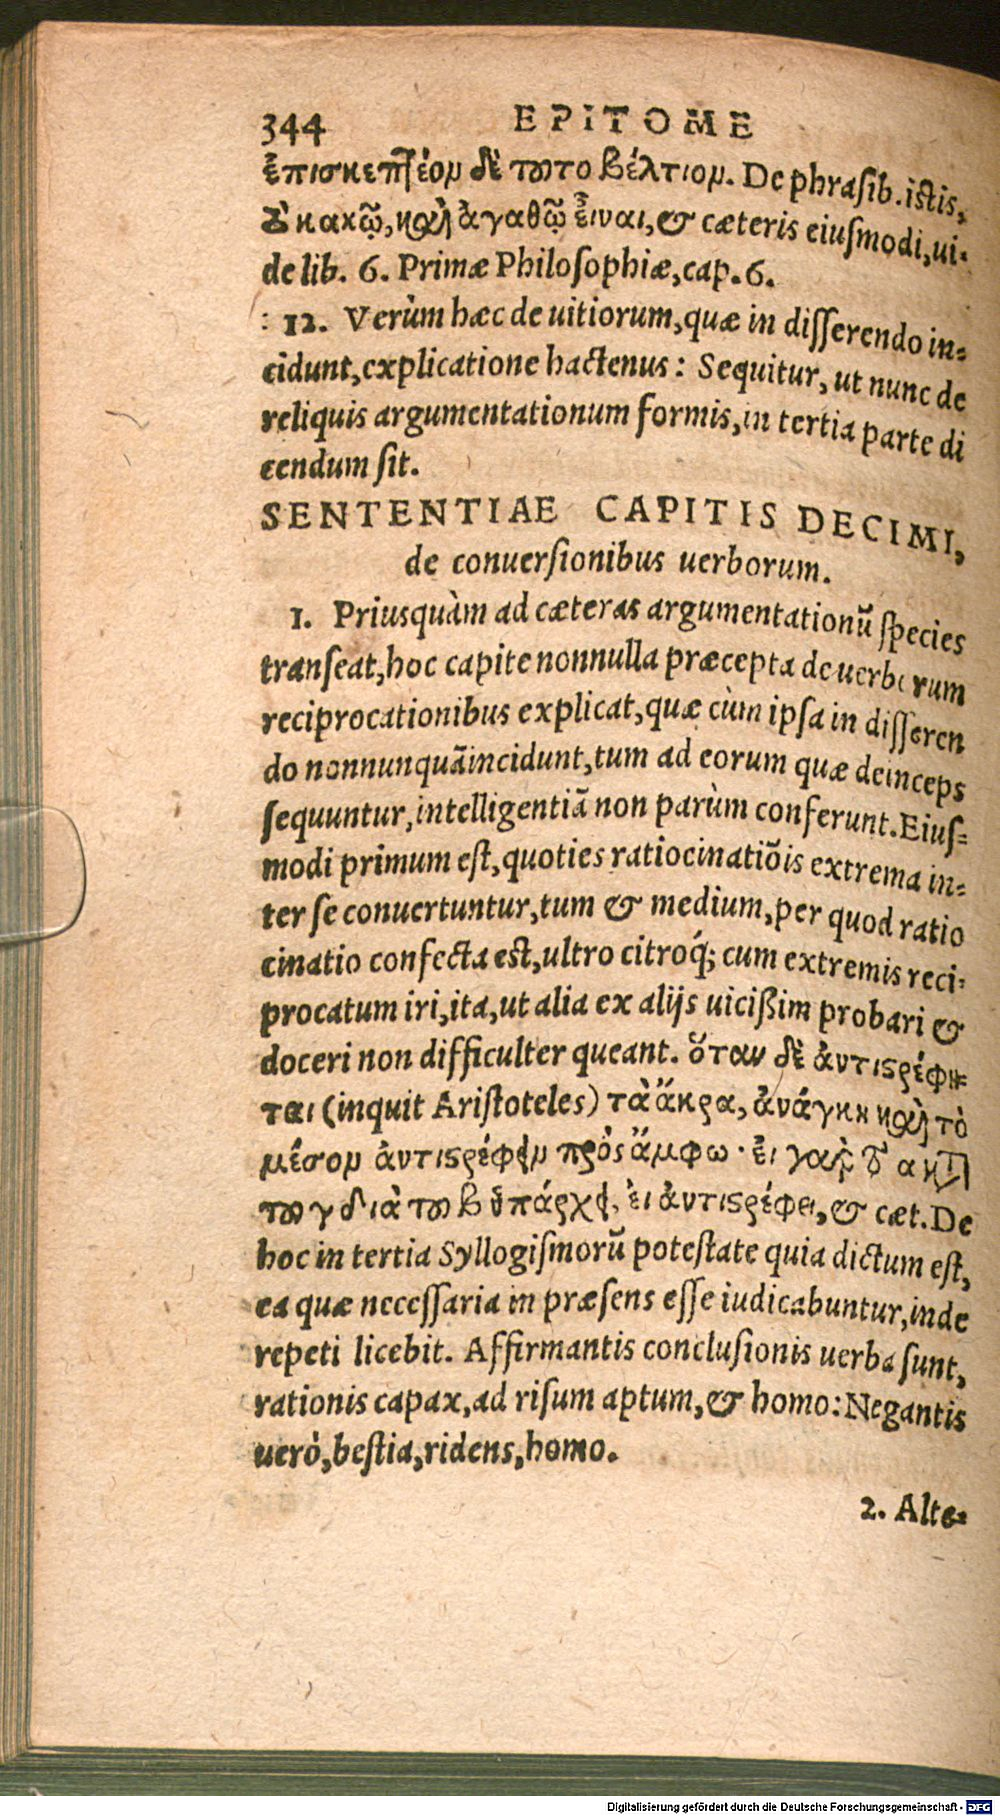 344 EPITOME
ἐπισκεπτέον δὲ τοῦτο βέλτιον. De phrasib. istis,
τὸ κακῷ, καὶ ἀγαθῷ εἶναι, & cæteris eiusmodi, ui-
de lib. 6. Primæ Philosophiæ, cap. 6.
: 12. Verùm hæc de uitiorum, quæ in disserendo in-
cidunt, explicatione hactenus: Sequitur, ut nunc de
reliquis argumentationum formis, in tertia parte di
cendum sit.
SENTENTIAE CAPITIS DECIMI,
de conuersionibus uerborum.
1. Priusquàm ad cæteras argumentationũ species
transeat, hoc capite nonnulla præcepta de uerborum
reciprocationibus explicat, quæ cùm ipsa in disseren
do nonnunquã incidunt, tum ad eorum quæ deinceps
sequuntur, intelligentiã non parùm conferunt. Eius-
modi primum est, quoties ratiocinatiõis extrema in-
ter se conuertuntur, tum & medium, per quod ratio
cinatio confecta est, ultro citroq́; cum extremis reci-
procatum iri, ita, ut alia ex alijs uicißim probari &
doceri non difficulter queant. ὅταν δὲ ἀντιστρέφη-
ται (inquit Aristoteles) τὰ ἄκρα, ἀνάγκη καὶ τὸ
μέσον ἀντιστρέφειν πρὸς ἄμφω· εἰ γὰρ τὸ α κατὰ
τοῦ γ διὰ τοῦ β ὑπάρχει, εἰ ἀντιστρέφει, & cæt. De
hoc in tertia Syllogismorũ potestate quia dictum est,
ea quæ necessaria in præsens esse iudicabuntur, inde
repeti licebit. Affirmantis conclusionis uerba sunt,
rationis capax, ad risum aptum, & homo: Negantis
uerò, bestia, ridens, homo.
2. Alte-
Digitalisierung gefördert durch die Deutsche Forschungsgemeinschaft - DFG